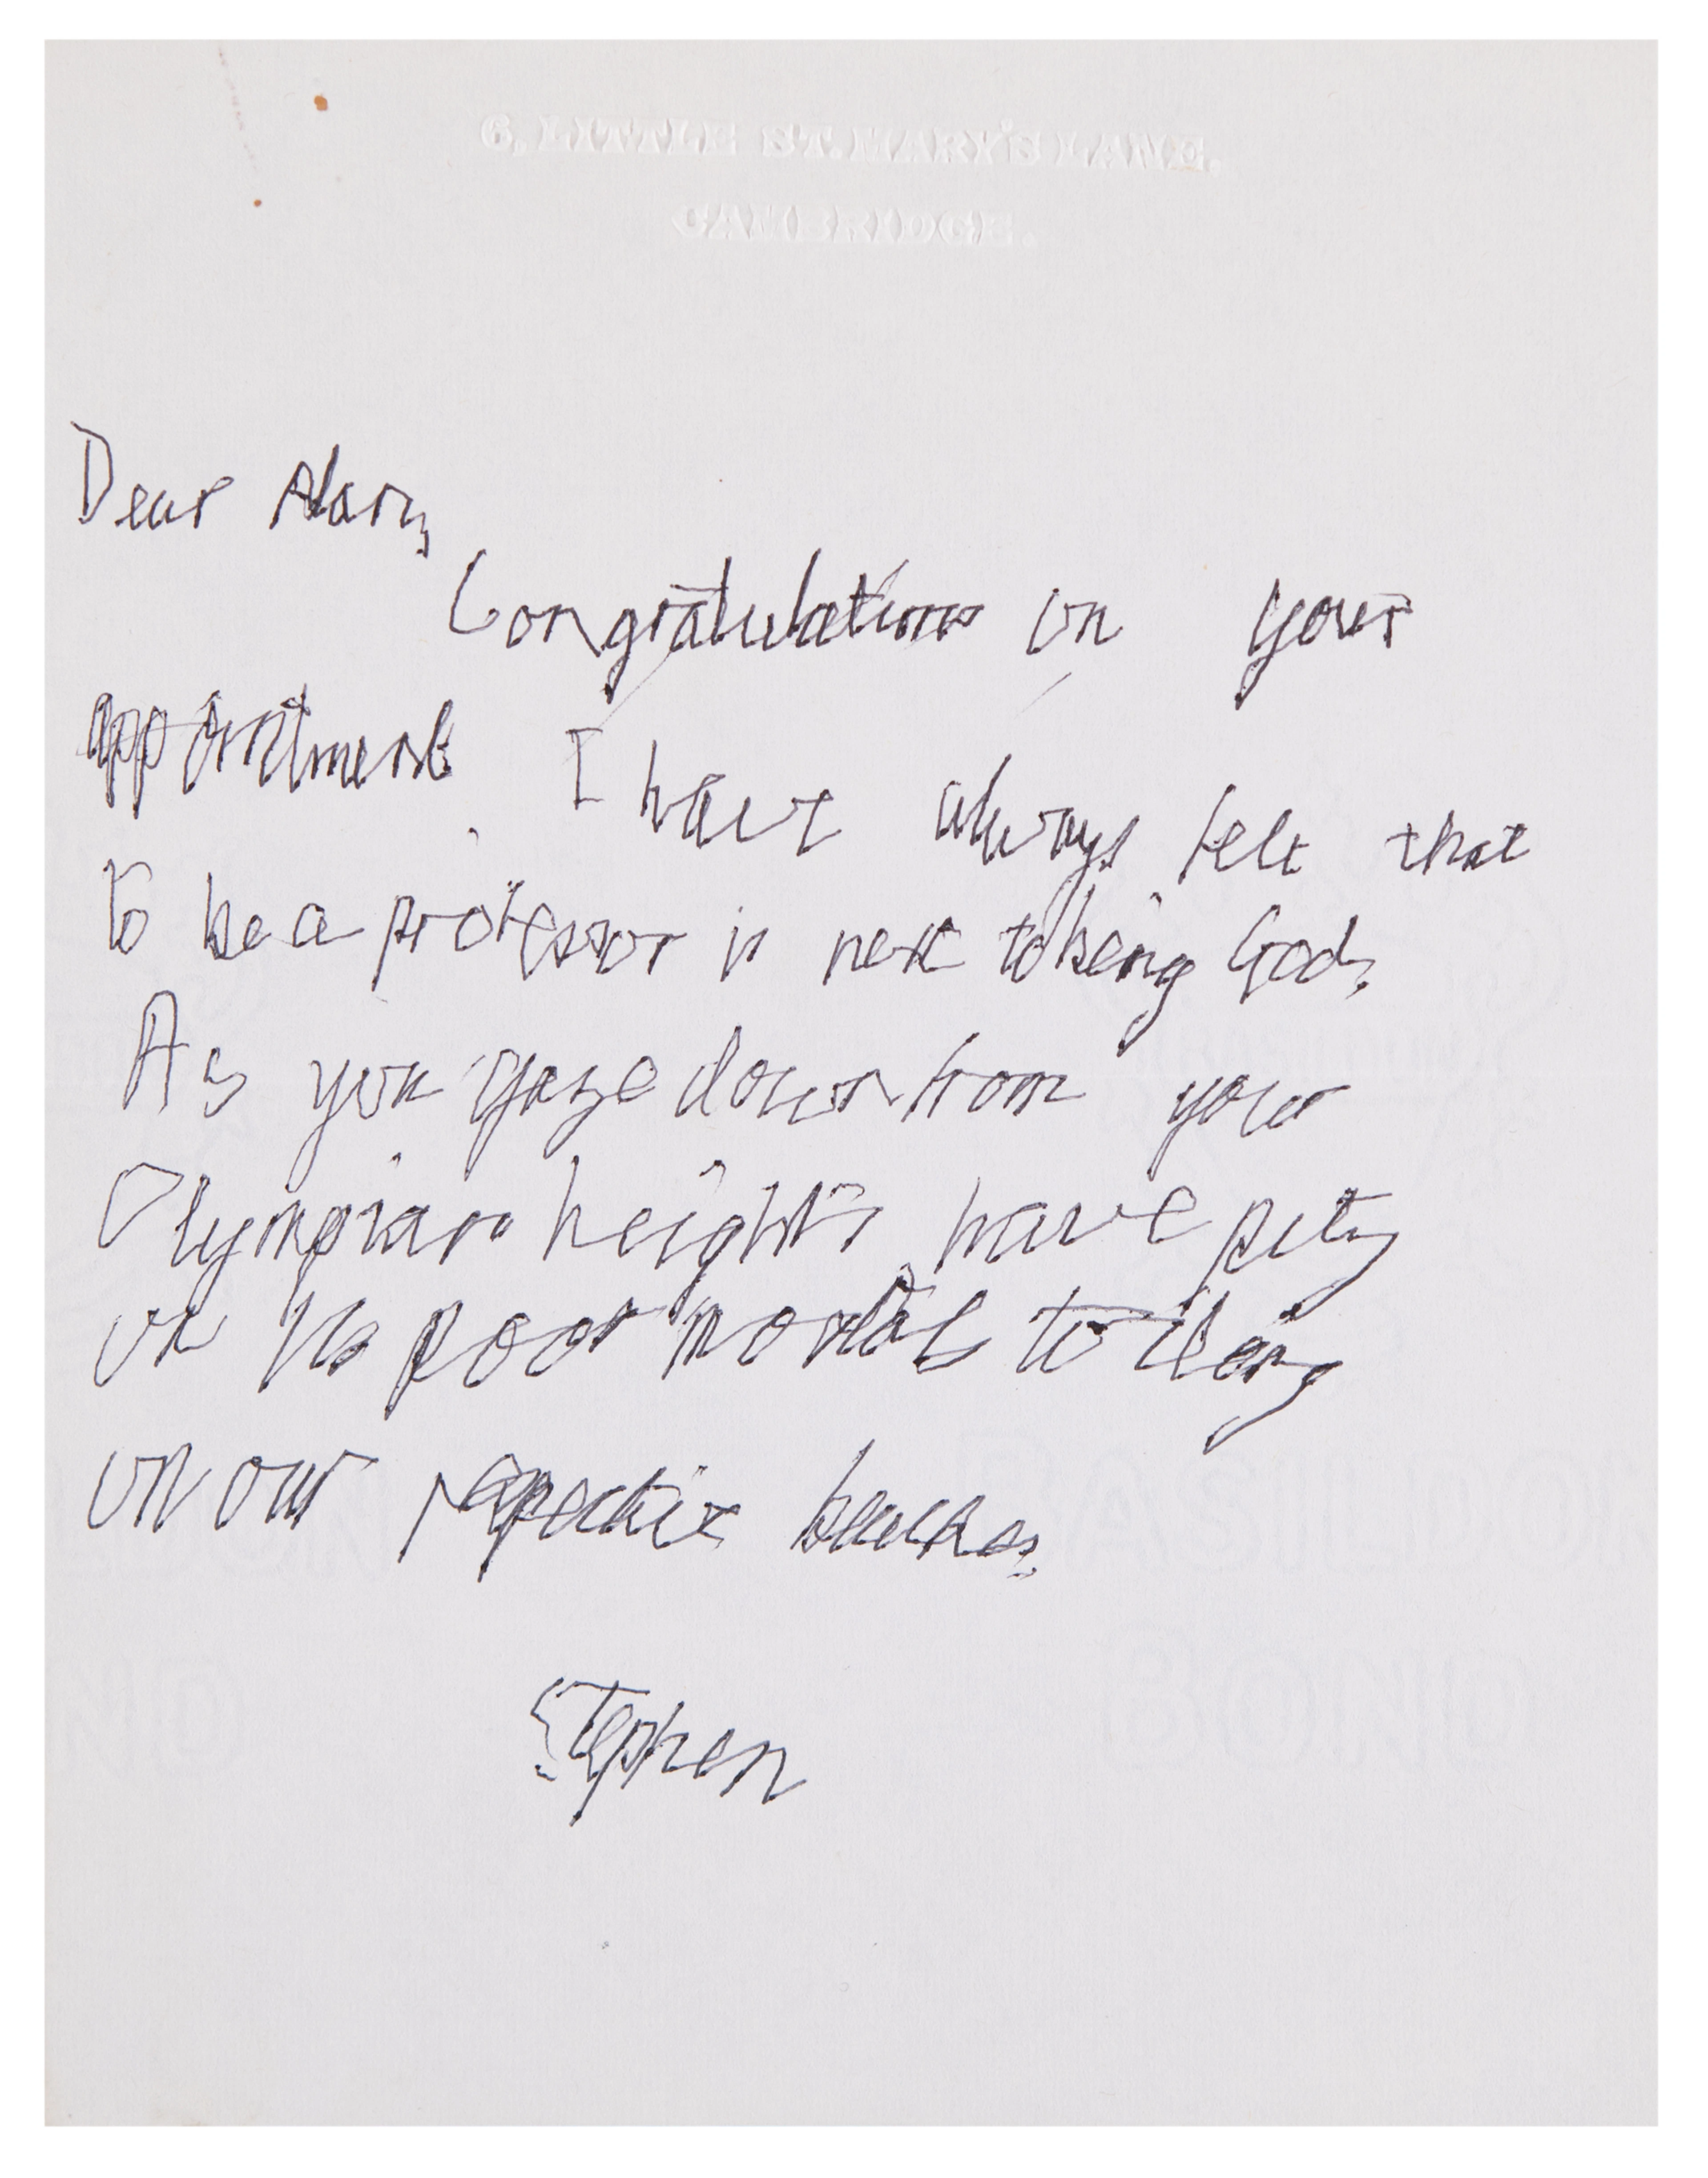 6, LITTLE ST. MARY'S LANE.
CAMBRIDGE.
Dear Alan,
Congratulations on your
appointment. I have always felt that
to be a professor is next to being God.
As you gaze down from your
Olympian heights, have pity
on us poor mortals toiling
on our respective
Stephen